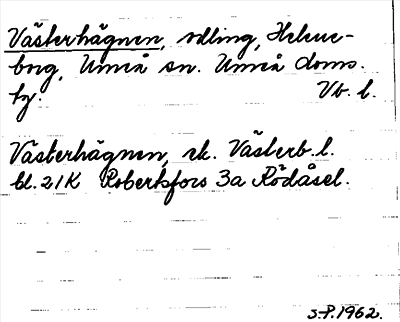 Västerhägnen, odling, Helene-
borg, Umeå sn. Umeå doms.
hg. Vb. l.
Västerhägnen, ek. Västerb. l.
bl. 21K Robertsfors 3a Rödåsel.
S.P. 1962.